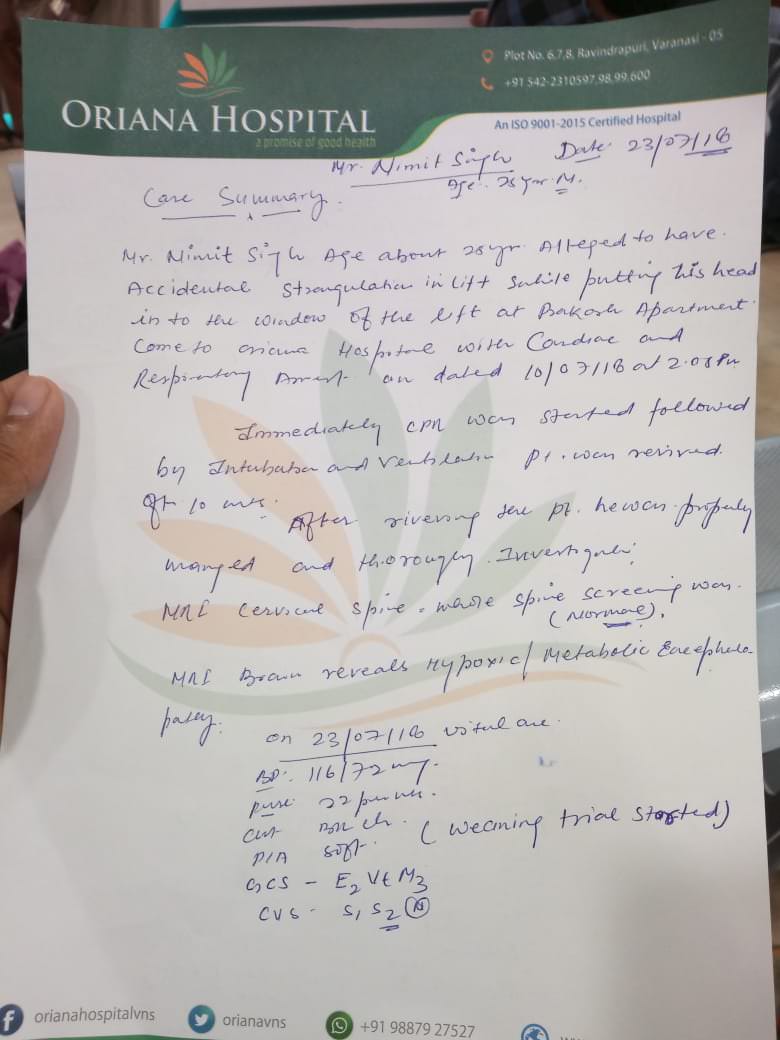 Plot No. 6,7,8, Ravindrapuri, Varanasi - 05
+91 542-2310597,98,99,600
ORIANA HOSPITAL
a promise of good health
An ISO 9001-2015 Certified Hospital
Mr. Nimit Singh Date: 23/07/18
Age: 28 yr. M.
Case Summary.
Mr. Nimit Sigh Age about 28 yr. Alleged to have.
Accidental Strangulation in lift while putting his head
in to the window of the lift at Apartment.
Come to oriana Hospital with Cardiac and
Respiratory Arrest on dated 10/07/18 at 2.08 Pm
Immediately CPR was started followed
by Intubation and Ventilation Pt. was revived
10
After the pt. he was properly
manged and thorougly.
MRI Cervical Spine. whole spine screening was.
(Normal).
MRI Brain reveals Hypoxic/Metabolic Encephalo
pathy.
on 23/07/18 vital are.
BP: 116/72
22
P/A Soft. (weaning trial started)
GCS - E2 Vt M3
CVS - S1 S2 (N)
orianahospitalvns
orianavns
+91 98879 27527